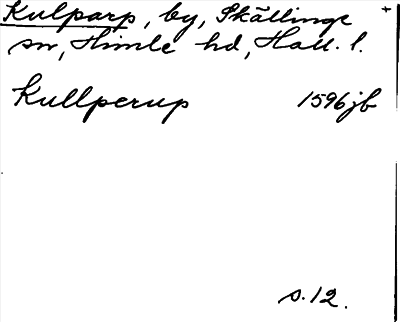 Kulparp, by, Skällinge +
sn, Himle hd, Hall. l.
Kullperup 1596 jb
s. 12.